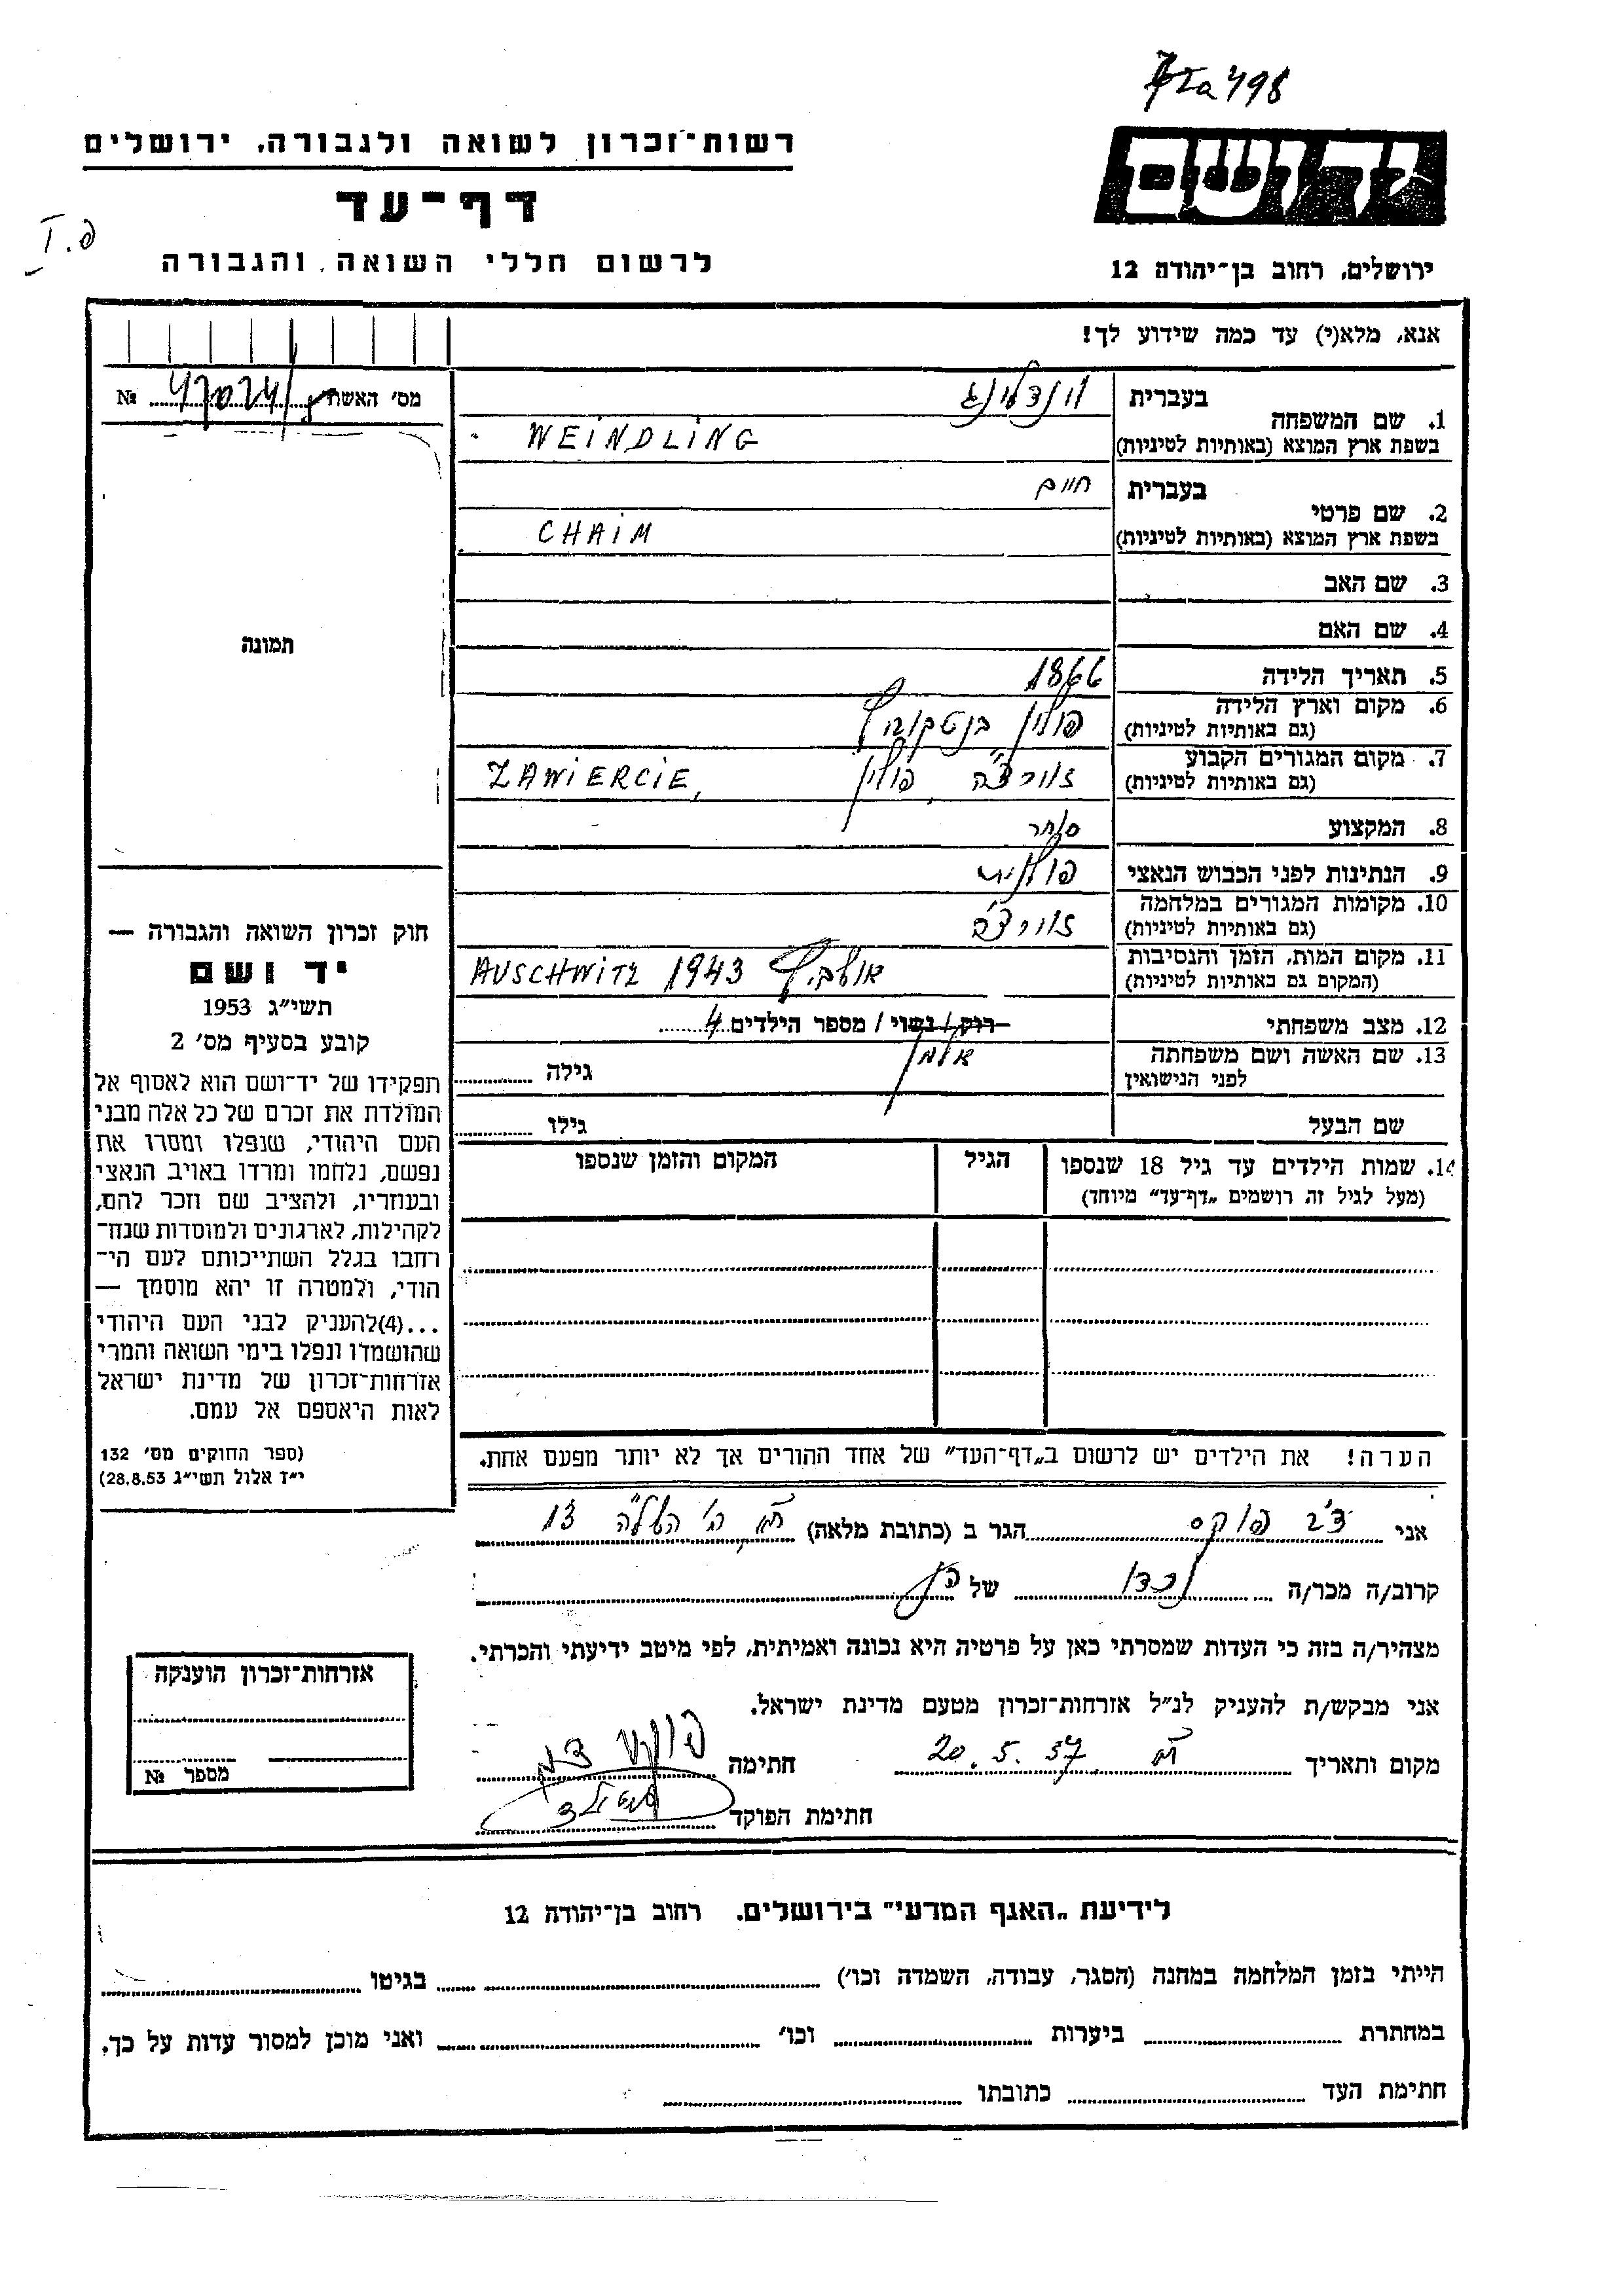 498
רשות־זכרון לשואה ולגבורה, ירושלים
יד ושם
דף־עד
I.פ
לרשום חללי השואה והגבורה
ירושלים, רחוב בן־יהודה 12
אנא, מלא(י) עד כמה שידוע לך!
מס׳ האשה № 47024
1. שם המשפחה
בעברית וינדלינג
בשפת ארץ המוצא (באותיות לטיניות) WEINDLING
2. שם פרטי
בעברית חיים
בשפת ארץ המוצא (באותיות לטיניות) CHAIM
3. שם האב
4. שם האם
תמונה
5. תאריך הלידה 1866
6. מקום וארץ הלידה פולין
(גם באותיות לטיניות)
7. מקום המגורים הקבוע
(גם באותיות לטיניות) פולין ZAWIERCIE,
8. המקצוע סוחר
9. הנתינות לפני הכבוש הנאצי פולנית
10. מקומות המגורים במלחמה
(גם באותיות לטיניות)
11. מקום המות, הזמן והנסיבות
(המקום גם באותיות לטיניות) AUSCHWITZ 1943
12. מצב משפחתי רוק / נשוי / מספר הילדים 4
אלמן
13. שם האשה ושם משפחתה
לפני הנישואין גילה
שם הבעל גילו
14. שמות הילדים עד גיל 18 שנספו הגיל המקום והזמן שנספו
(מעל לגיל זה רושמים „דף־עד״ מיוחד)
חוק זכרון השואה והגבורה —
יד ושם
תשי״ג 1953
קובע בסעיף מס׳ 2
תפקידו של יד־ושם הוא לאסוף אל
המולדת את זכרם של כל אלה מבני
העם היהודי, שנפלו ומסרו את
נפשם, נלחמו ומרדו באויב הנאצי
ובעוזריו, ולהציב שם וזכר להם,
לקהילות, לארגונים ולמוסדות שנח־
רחבו בגלל השתייכותם לעם הי־
הודי, ולמטרה זו יהא מוסמך —
...(4)להעניק לבני העם היהודי
שהושמדו ונפלו בימי השואה והמרי
אזרחות־זכרון של מדינת ישראל
לאות היאספם אל עמם.
(ספר החוקים מס׳ 132
י״ז אלול תשי״ג 28.8.53)
הערה! את הילדים יש לרשום ב„דף־העד״ של אחד ההורים אך לא יותר מפעם אחת.
אני צבי פוקס הגר ב (כתובת מלאה) 13
קרוב/ה מכר/ה נכדו של
מצהיר/ה בזה כי העדות שמסרתי כאן על פרטיה היא נכונה ואמיתית, לפי מיטב ידיעתי והכרתי.
אני מבקש/ת להעניק לנ״ל אזרחות־זכרון מטעם מדינת ישראל.
מקום ותאריך 20.5.57 חתימה
חתימת הפוקד
אזרחות־זכרון הוענקה
מספר №
לידיעת „האגף המדעי״ בירושלים, רחוב בן־יהודה 12
הייתי בזמן המלחמה במחנה (הסגר, עבודה, השמדה וכו׳) בגיטו
במחתרת ביערות וכו׳ ואני מוכן למסור עדות על כך.
חתימת העד כתובתו